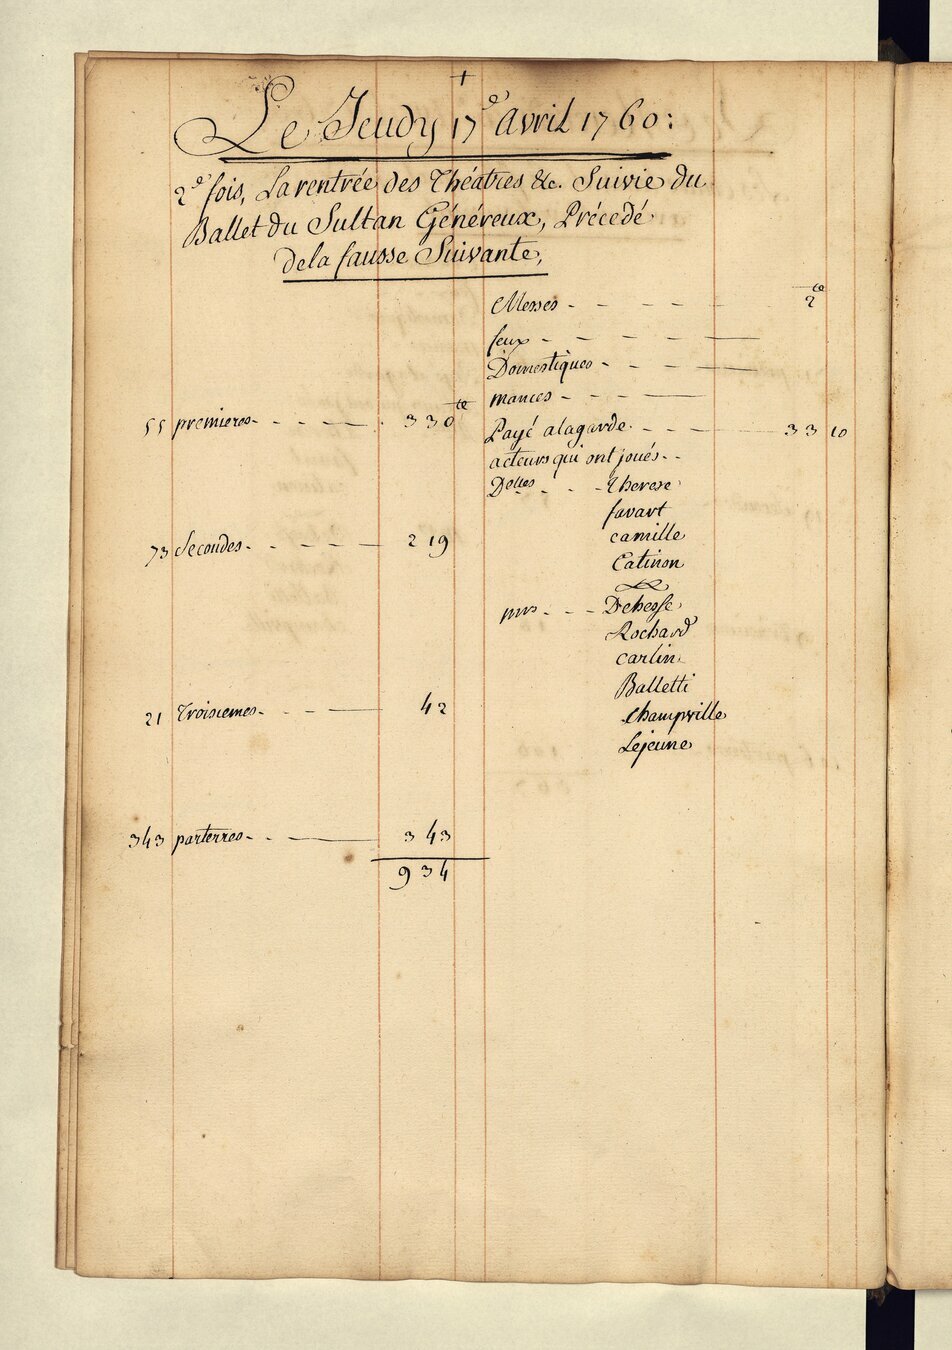 +
Le Jeudy 17e avril 1760:
2e fois, La rentrée des Théatres &c. Suivie du
Ballet du Sultan Généreux, Précedé
dela fausse Suivante,
Messes - - - - - 2 tt
feux - - - - -
Domestiques - - - -
mances - - -
55 premieres - - - - - 330 tt
Payé alagarde - - - - 33 10
acteurs qui ont joués - -
Delles - - - Therese
favart
73 Secondes - - - - 219
camille
Catinon
mrs - - - Dehesse
Rochard
carlin
Balletti
21 Troisiemes - - - 42
Champville
Lejeune
343 parterres - - - 343
934